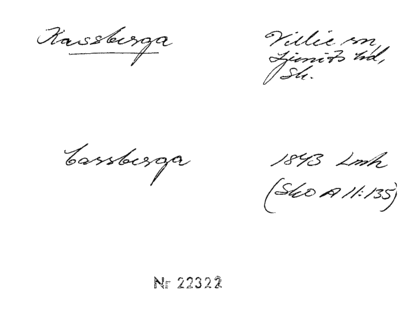 Kassberga
Villie sn,
Ljunits hd,
Sk.
Cassberga
1843 Lmk
(SkO A 11:135)
Nr 22322